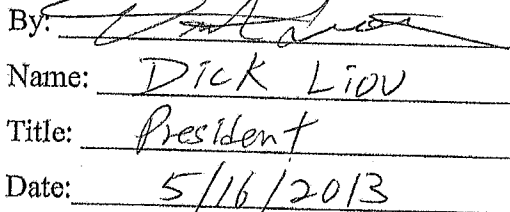 By:
Name: Dick Liou
Title: President
Date: 5/16/2013